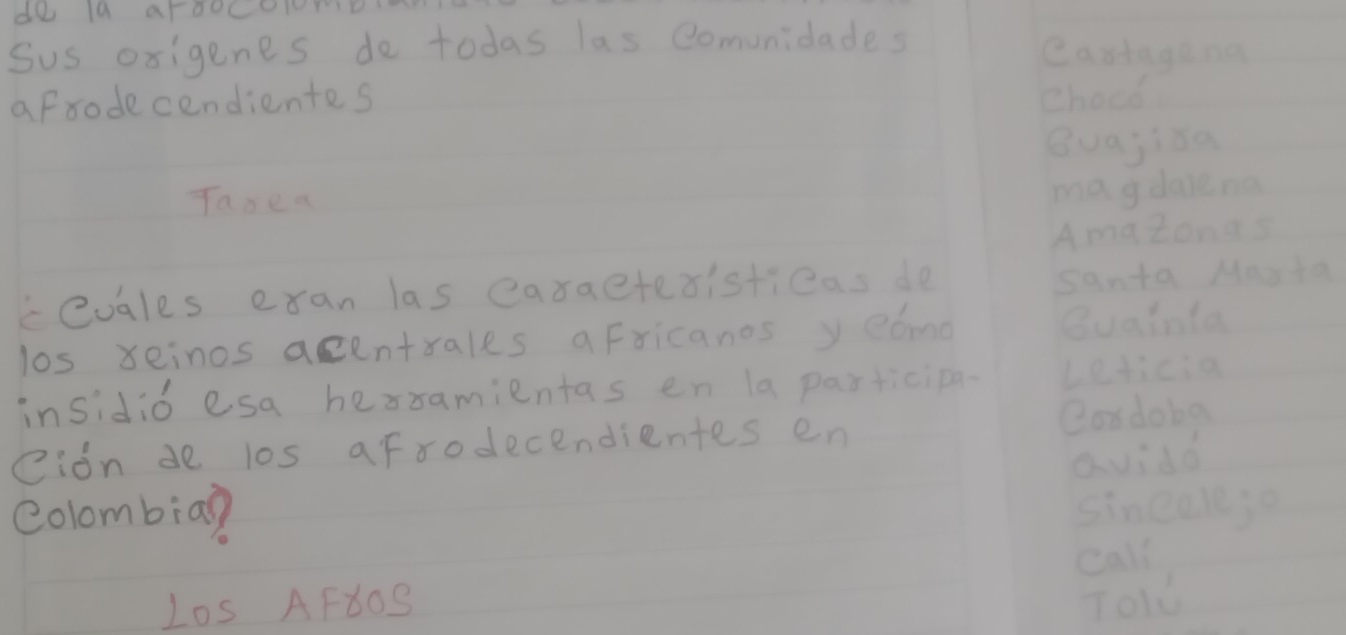 de la
Sus orígenes de todas las comunidades
afrodecendientes
Tarea
¿Cuáles eran las características de
los reinos acentrales africanos y cómo
insidió esa herramientas en la participa-
ción de los afrodecendientes en
Colombia?
Los AFROS
Cartagena
Chocó
Guajira
magdalena
Amazonas
Santa Marta
Guainía
Leticia
Cordoba
Quidó
Sincelejo
Cali
Tolú